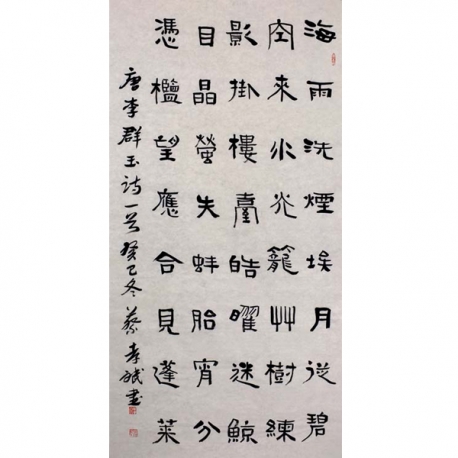 海雨洗煙埃月從碧
空來水光籠艸樹練
影掛樓臺皓曜迷鯨
目晶螢失蚌胎宵分
憑檻望應合見蓬萊
唐李群玉詩一首癸巳冬蔡孝斌書